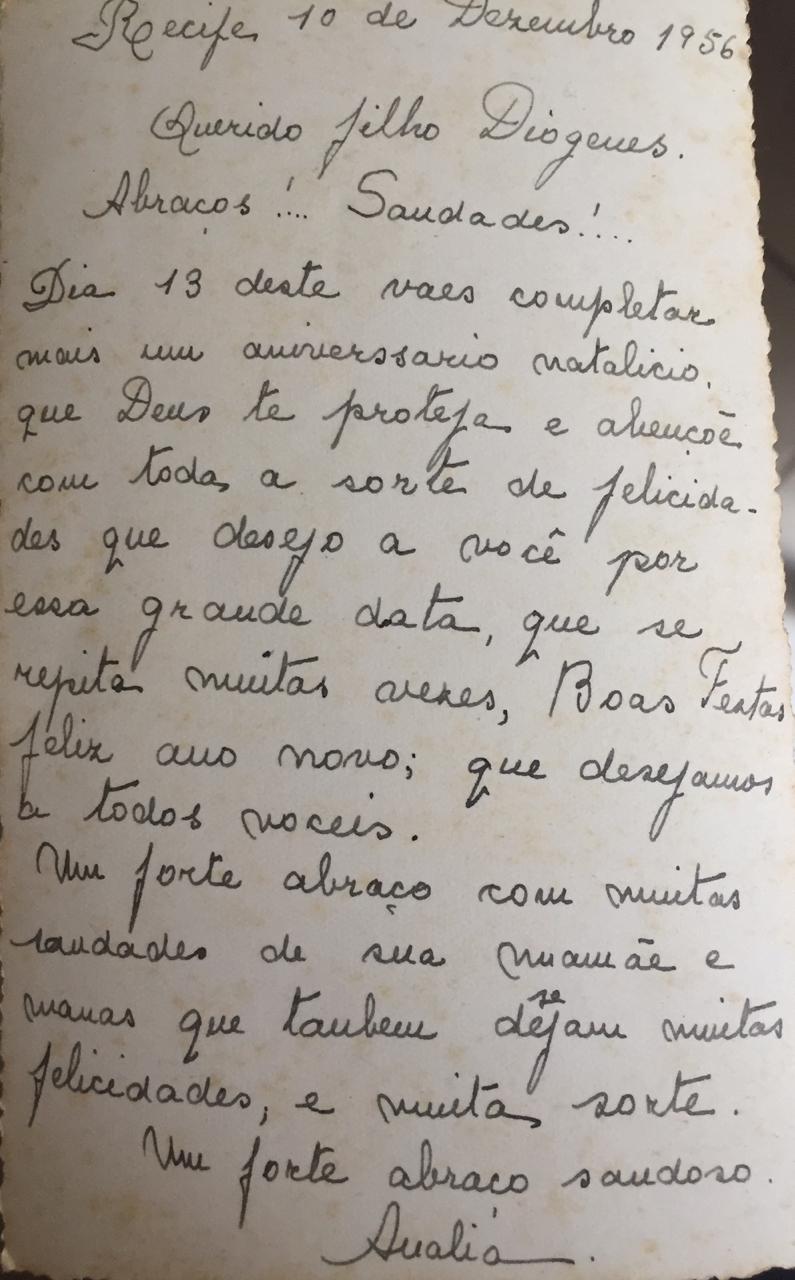 Recife 10 de Dezembro 1956
Querido filho Diogenes.
Abraços!... Saudades!...
Dia 13 deste vaes completar
mais um aniverssario natalicio,
que Deus te proteja e abençõe
com toda a sorte de felicida-
des que desejo a você por
essa grande data, que se
repita muitas vezes, Boas Festas
feliz ano novo; que desejamos
a todos voceis.
Um forte abraço com muitas
saudades de sua mamãe e
manas que tanbem desejam muitas
felicidades, e muita sorte.
Um forte abraço saudoso.
Analia.